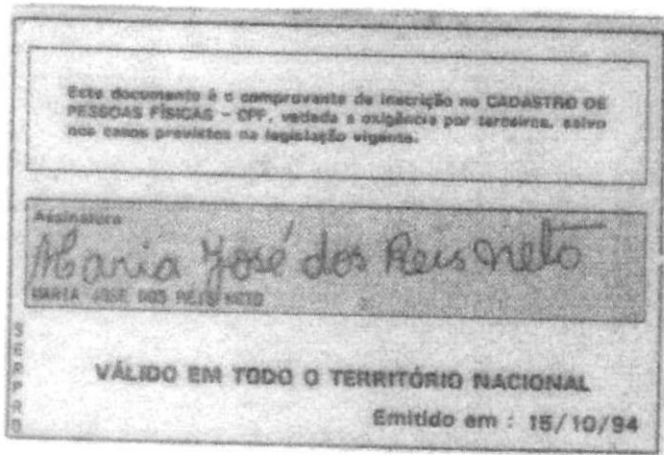 Este documento é o comprovante de inscrição no CADASTRO DE
PESSOAS FÍSICAS - CPF, vedada a exigência por terceiros, salvo
nos casos previstos na legislação vigente.
Assinatura
Maria José dos Reis Neto
MARIA JOSE DOS REIS NETO
SERPRO
VÁLIDO EM TODO O TERRITÓRIO NACIONAL
Emitido em : 15/10/94